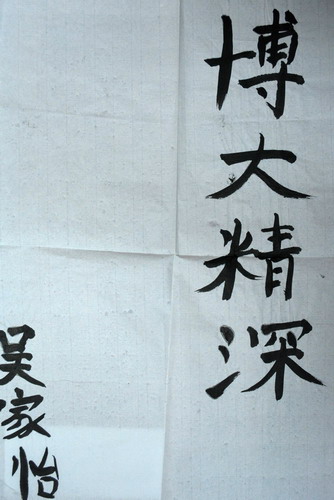 博大精深
吴家怡